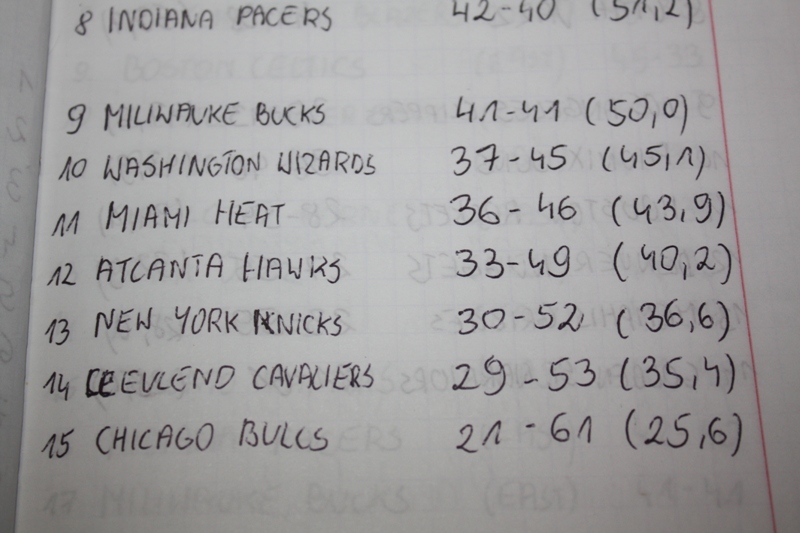 8 INDIANA PACERS 42-40 (51,2)
9 MILIWAUKE BUCKS 41-41 (50,0)
10 WASHINGTON WIZARDS 37-45 (45,1)
11 MIAMI HEAT 36-46 (43,9)
12 ATLANTA HAWKS 33-49 (40,2)
13 NEW YORK KNICKS 30-52 (36,6)
14 CLEEVLEND CAVALIERS 29-53 (35,4)
15 CHICAGO BULLS 21-61 (25,6)